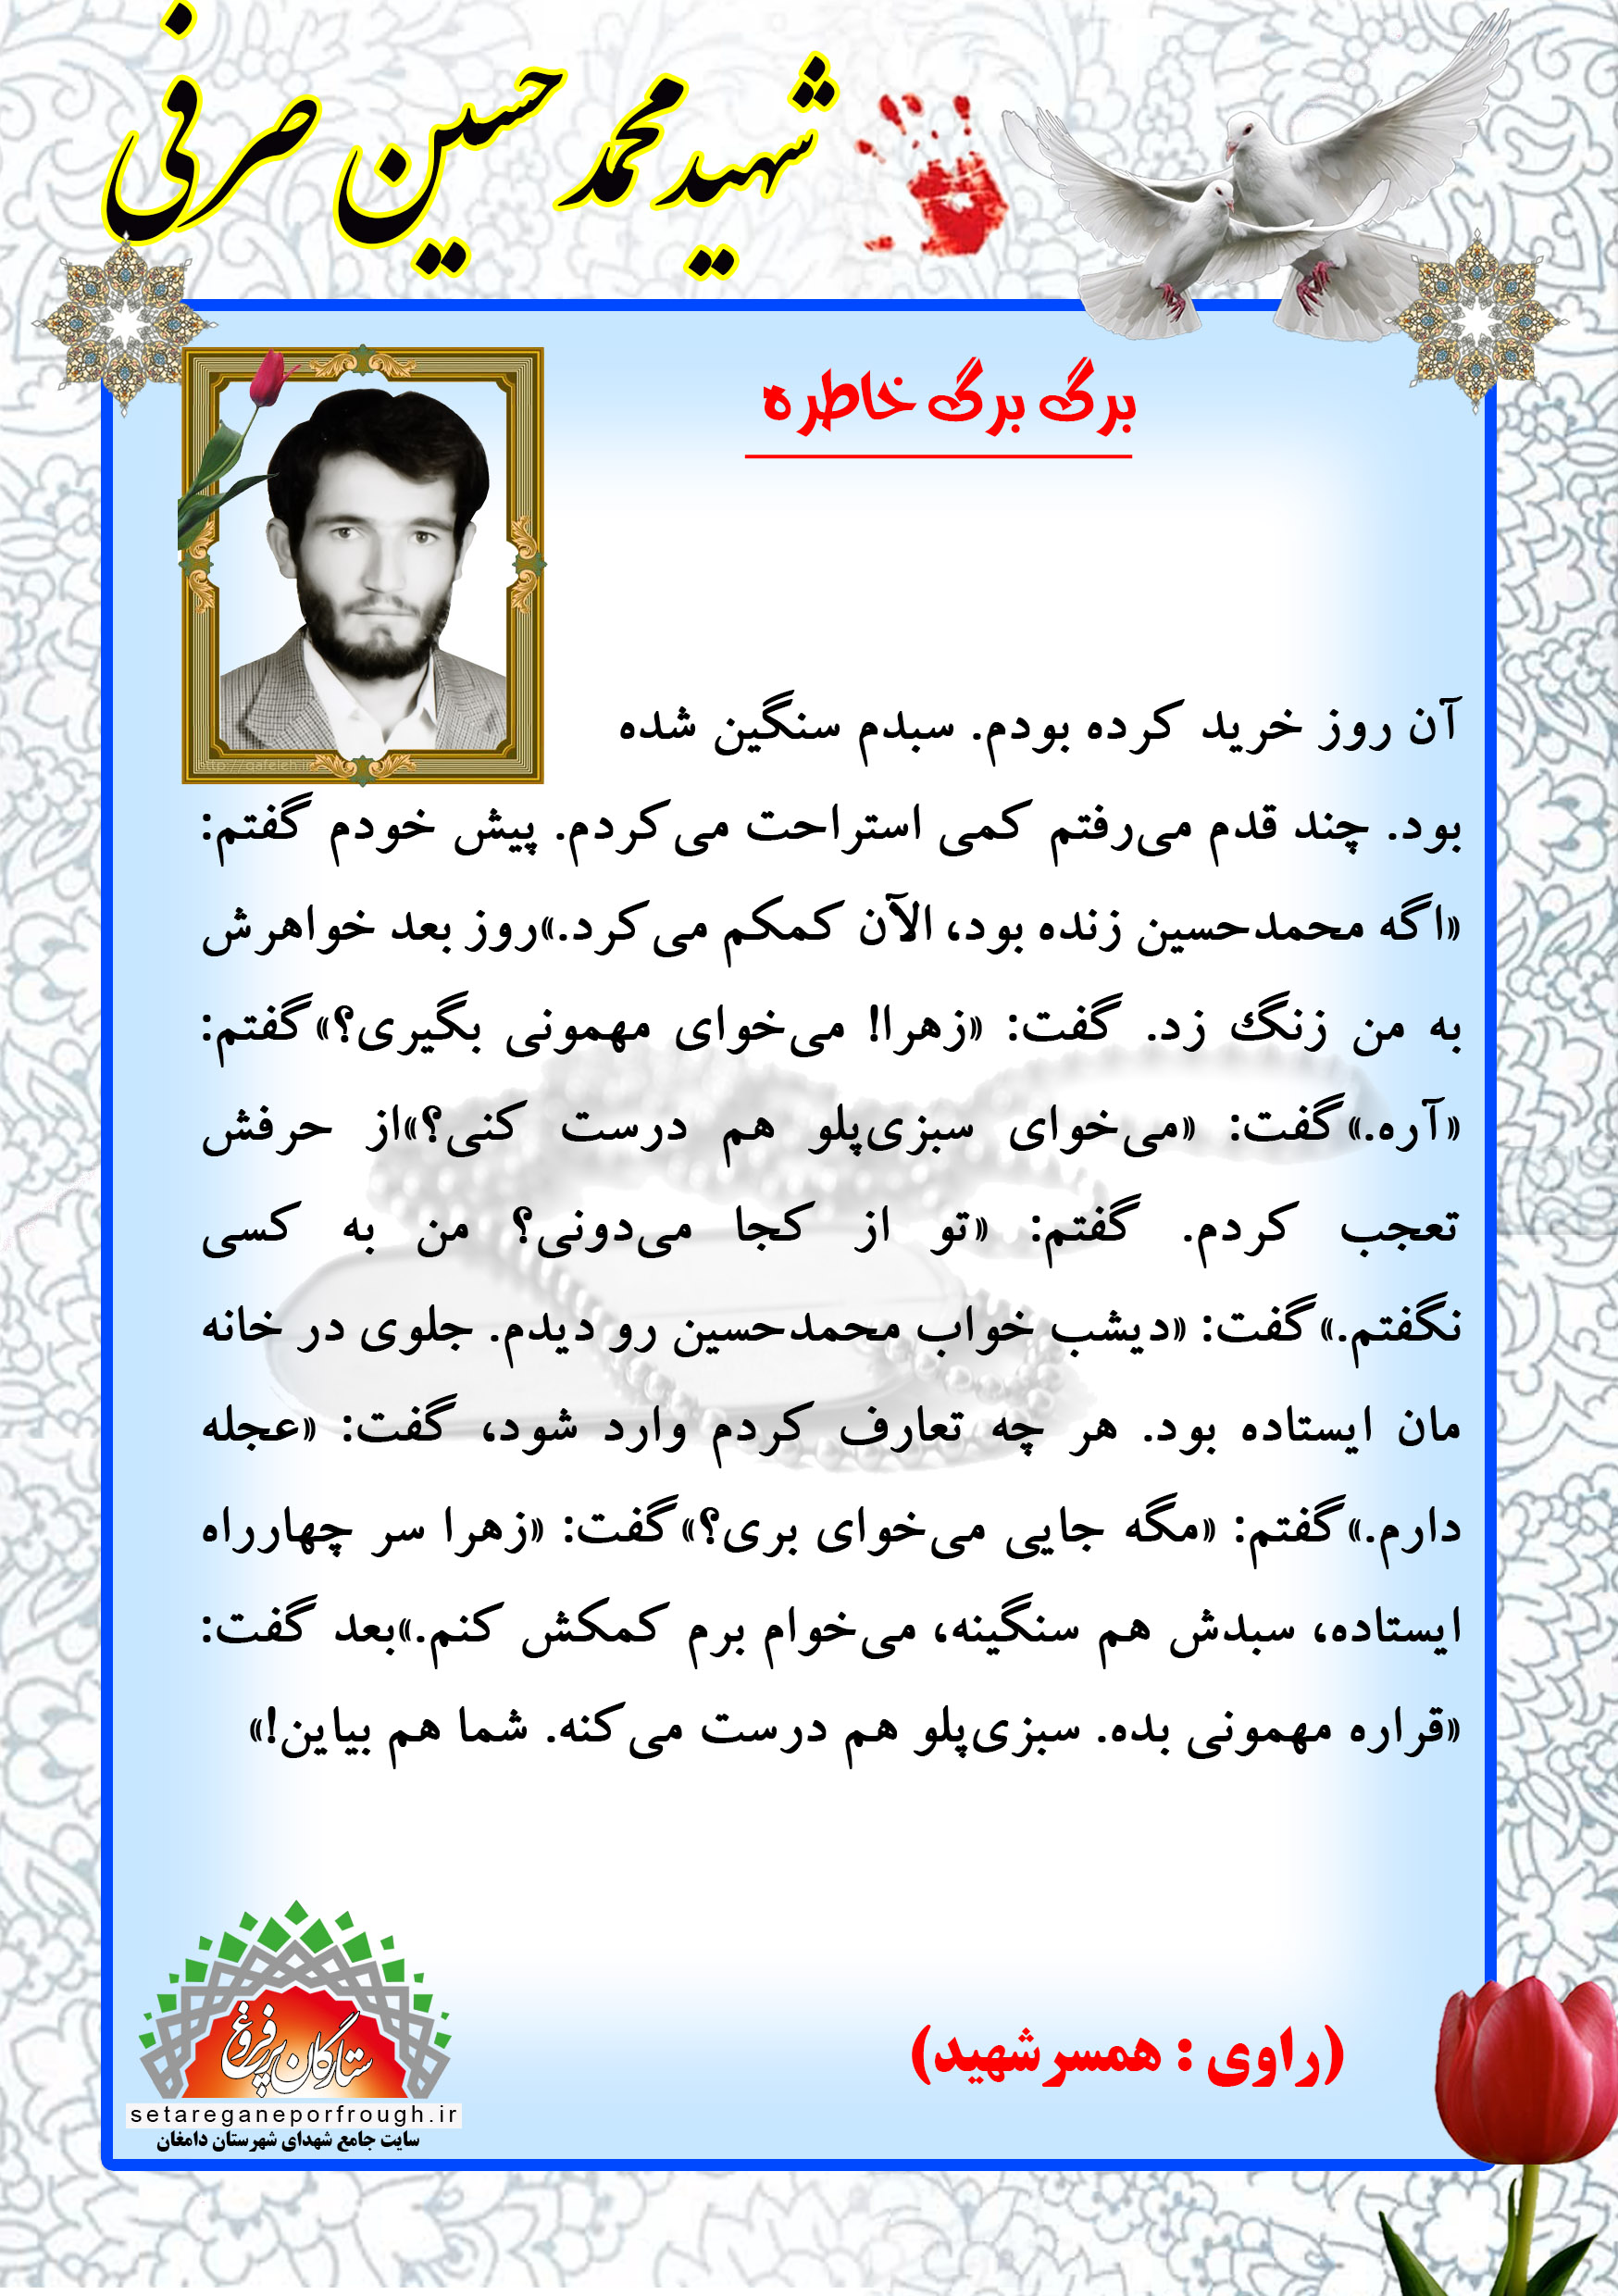 شهید محمد حسین صرفی
برگ برگ خاطره
http://qafeleh.ir
آن روز خرید کرده بودم. سبدم سنگین شده
بود. چند قدم می‌رفتم کمی استراحت می‌کردم. پیش خودم گفتم:
«اگه محمدحسین زنده بود، الآن کمکم می‌کرد.»روز بعد خواهرش
به من زنگ زد. گفت: «زهرا! می‌خوای مهمونی بگیری؟»گفتم:
«آره.»گفت: «می‌خوای سبزی‌پلو هم درست کنی؟»از حرفش
تعجب کردم. گفتم: «تو از کجا می‌دونی؟ من به کسی
نگفتم.»گفت: «دیشب خواب محمدحسین رو دیدم. جلوی در خانه
مان ایستاده بود. هر چه تعارف کردم وارد شود، گفت: «عجله
دارم.»گفتم: «مگه جایی می‌خوای بری؟»گفت: «زهرا سر چهارراه
ایستاده، سبدش هم سنگینه، می‌خوام برم کمکش کنم.»بعد گفت:
«قراره مهمونی بده. سبزی‌پلو هم درست می‌کنه. شما هم بیاین!»
(راوی : همسرشهید)
ستارگان پرفروغ
setareganeporfrough.ir
سایت جامع شهدای شهرستان دامغان